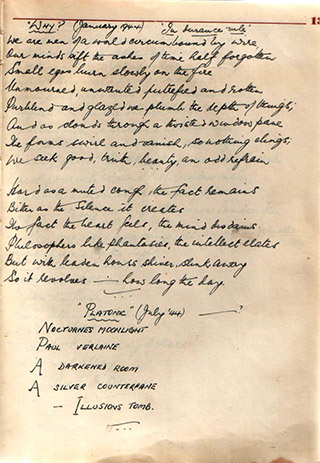 "Why?" (January 1944) 'In durance vile'
We are men of a world circumbound by wire
Our minds sift the ashes of time half forgotten
Small egos burn slowly on the fire
Unmourned, unwanted putrefied and rotten
Purblind and glazed we plumb the depth of things,
And as clouds through a twisted window pane
The forms swirl and vanish, so nothing clings,
We seek good, truth, beauty, an odd refrain
Hard as a muted cough, the fact remains
Bitter as the silence it creates
No fact the heart feels, the mind disdains
Philosophers like phantasies, the intellect elates
But with leaden hours shiver, slink away
So it revolves — how long the day.
"Platonic" (July '44) — ?
Nocturnes moonlight
Paul Verlaine
A darkened room
A silver counterpane
— Illusions tomb.